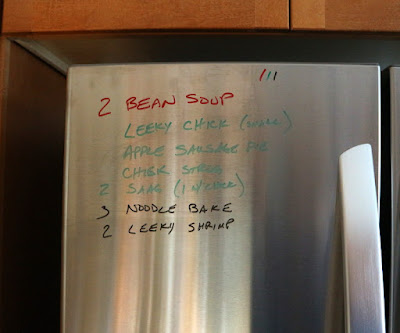 2 BEAN SOUP
LEEKY CHICK (SMALL)
APPLE SAUSAGE PIE
CHICK STROG
2 SAAG (1 N/CHICK)
3 NOODLE BAKE
2 LEEKY SHRIMP